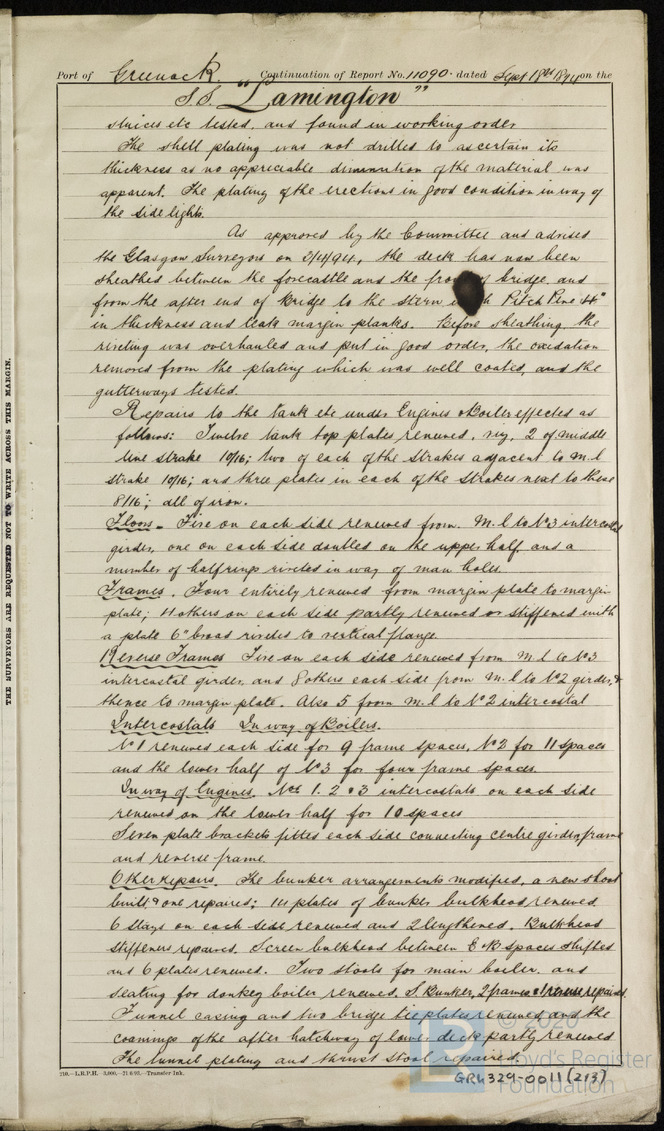 Port of Greenock Continuation of Report No. 11090 dated Sept 18th 1894 on the
S.S. "Lamington"
sluices etc tested, and found in working order
The shell plating was not drilled to ascertain its
thickness as no appreciable diminution of the material was
apparent. The plating of the erections in good condition in way of
the side lights.
As approved by the Committee and advised
the Glasgow Surveyors on 2/4/94, the deck has now been
sheathed between the forecastle and the front of bridge, and
from the after end of bridge to the stern with Pitch Pine 4"
in thickness and teak margin planks. Before sheathing the
riveting was overhauled and put in good order, the oxidation
removed from the plating which was well coated, and the
gutterways tested.
Repairs to the tank etc under Engines & Boilers effected as
follows: Twelve tank top plates renewed, viz, 2 of middle
line strake 10/16; two of each of the strakes adjacent to m.l
strake 10/16; and three plates in each of the strakes next to these
8/16; all of iron.
Floors - Five on each side renewed from M.l to No 3 intercostal
girder, one on each side doubled on the upper half and a
number of half rings riveted in way of man holes.
Frames. Four entirely renewed from margin plate to margin
plate; 11 others on each side partly renewed or stiffened with
a plate 6" broad riveted to vertical flange.
Reverse Frames Five on each side renewed from M.l to No 3
intercostal girder, and 8 others each side from M.l to No 2 girder, &
thence to margin plate. Also 5 from M.l to No 2 intercostal
Intercostals In way of Boilers.
No 1 renewed each side for 9 frame spaces, No 2 for 11 spaces
and the lower half of No 3 for four frame spaces.
In way of Engines. Nos 1. 2 & 3 intercostals on each side
renewed on the lower half for 10 spaces
Seven plate brackets fitted each side connecting centre girder, frame
and reverse frame.
Other repairs. The bunker arrangements modified, a new shoot
built & one repaired; 14 plates of bunker bulkhead renewed
6 stays on each side renewed and 2 lengthened. Bulkhead
stiffeners repaired. Screen bulkhead between E & B spaces shifted
and 6 plates renewed. Two stools for main boiler, and
seating for donkey boiler renewed. S. Bunker, 2 frames & 1 reverse repaired.
Funnel casing and two bridge tie plates renewed and the
coamings of the after hatchway of lower deck partly renewed
The tunnel plating and thrust stool repaired.
210.—L.R.P.H.—3,000.—21.6.93.—Transfer Ink.
GRK329-0011 (213)
THE SURVEYORS ARE REQUESTED NOT TO WRITE ACROSS THIS MARGIN.
© 2020
Lloyd's Register
Foundation
LR